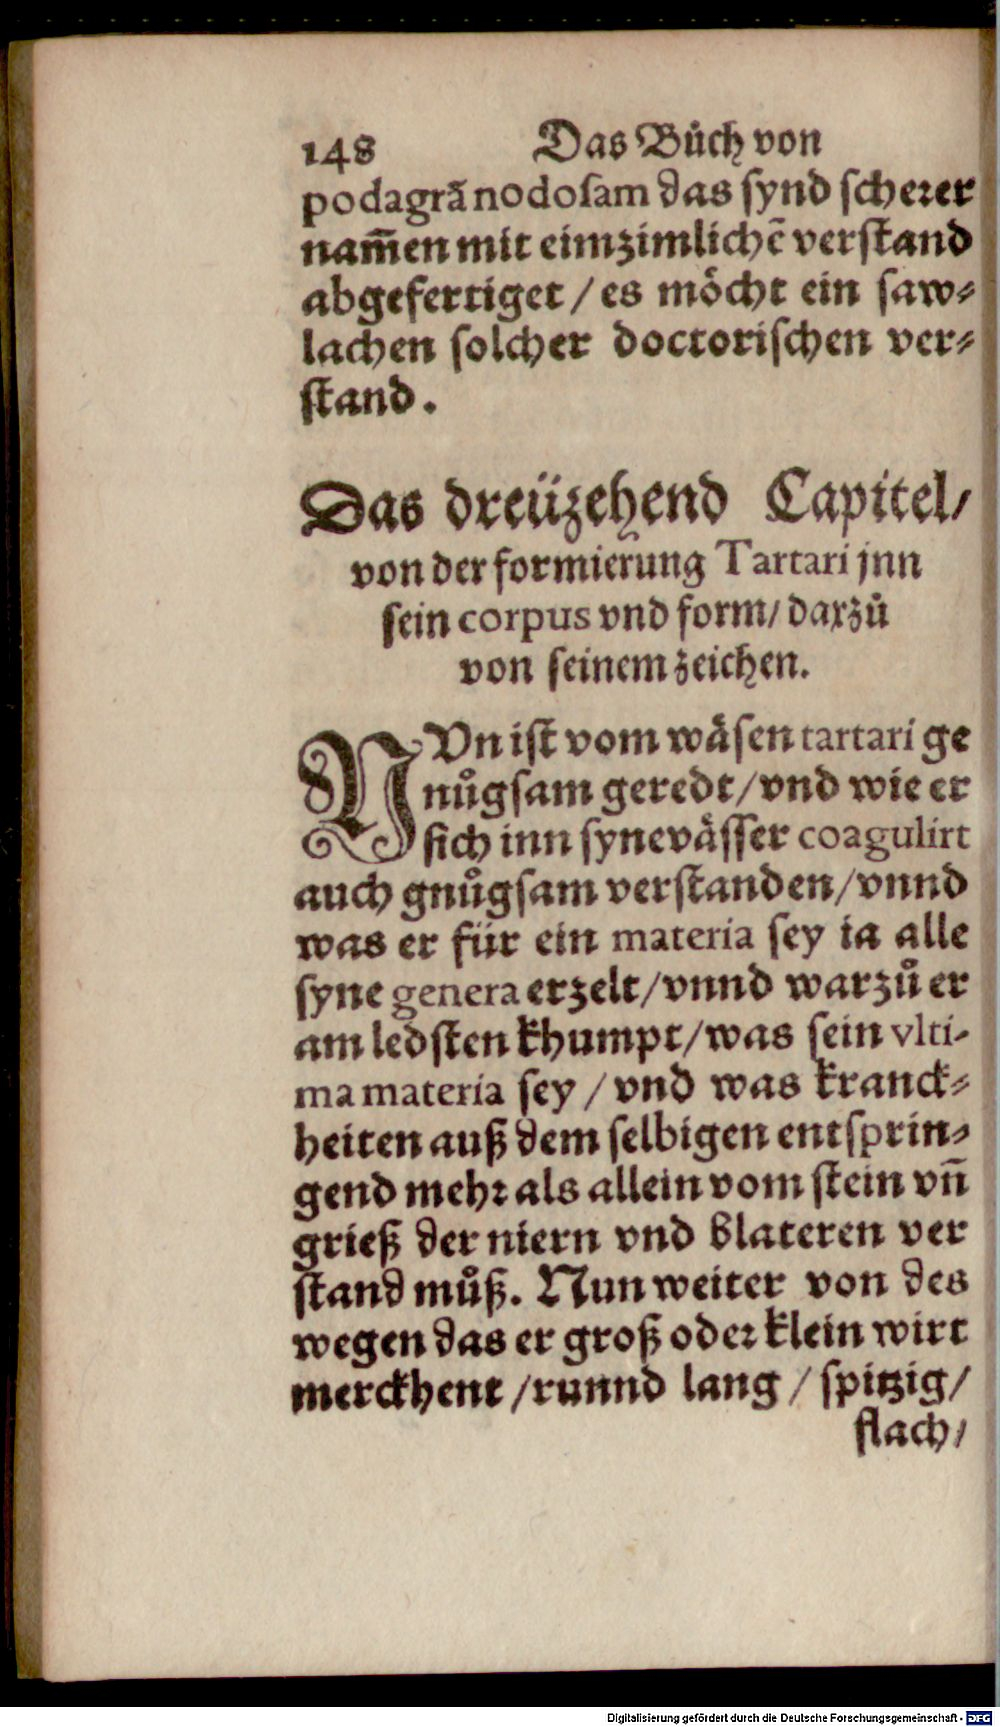 148 Das Bůch von
podagrā nodosam das synd scherer
nam̄en mit eimzimlichē verstand
abgefertiget / es möcht ein saw⸗
lachen solcher doctorischen ver⸗
stand.
Das dreüzehend Capitel/
von der formierung Tartari jnn
sein corpus vnd form/ darzů
von seinem zeichen.
NVn ist vom wäsen tartari ge
nůgsam geredt/ vnd wie er
sich inn synevässer coagulirt
auch gnůgsam verstanden/ vnnd
was er für ein materia sey ia alle
syne genera erzelt/ vnnd warzů er
am ledsten khumpt/ was sein vlti-
ma materia sey / vnd was kranck⸗
heiten auß dem selbigen entsprin⸗
gend mehr als allein vom stein vn̄
grieß der niern vnd blateren ver
stand můß. Nun weiter von des
wegen das er groß oder klein wirt
merckhent / runnd lang / spitzig/
flach/
Digitalisierung gefördert durch die Deutsche Forschungsgemeinschaft - DFG